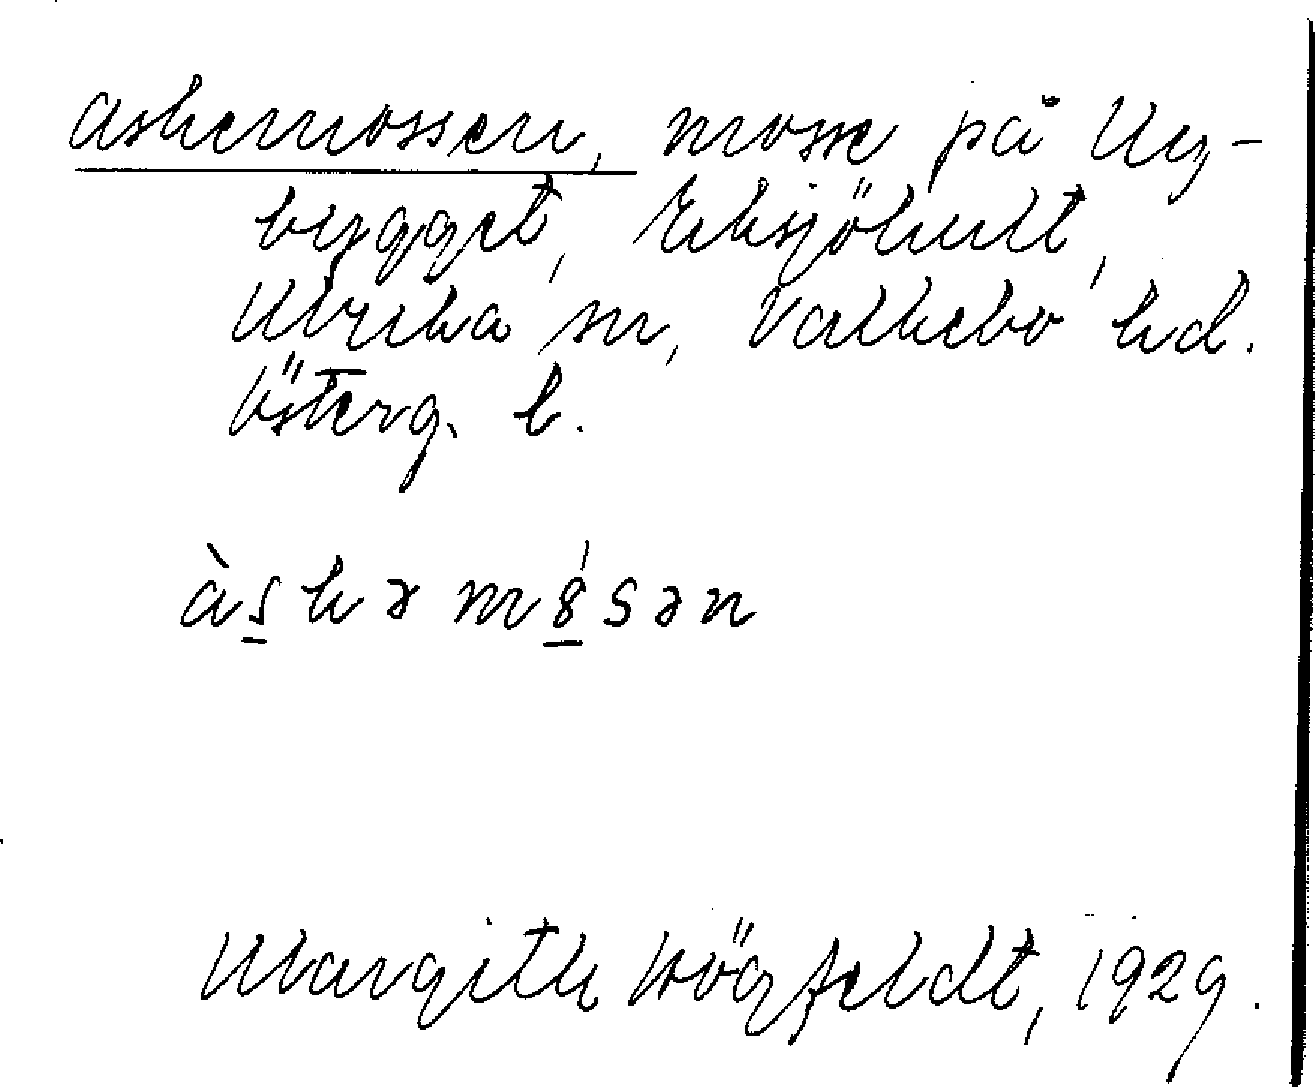 askemossen, mosse på Ny-
bygget, Eksjöhult,
Ulrika sn, Valkebo hd.
Österg. l.
àskəm8́sən
Margith Högfeldt, 1929.